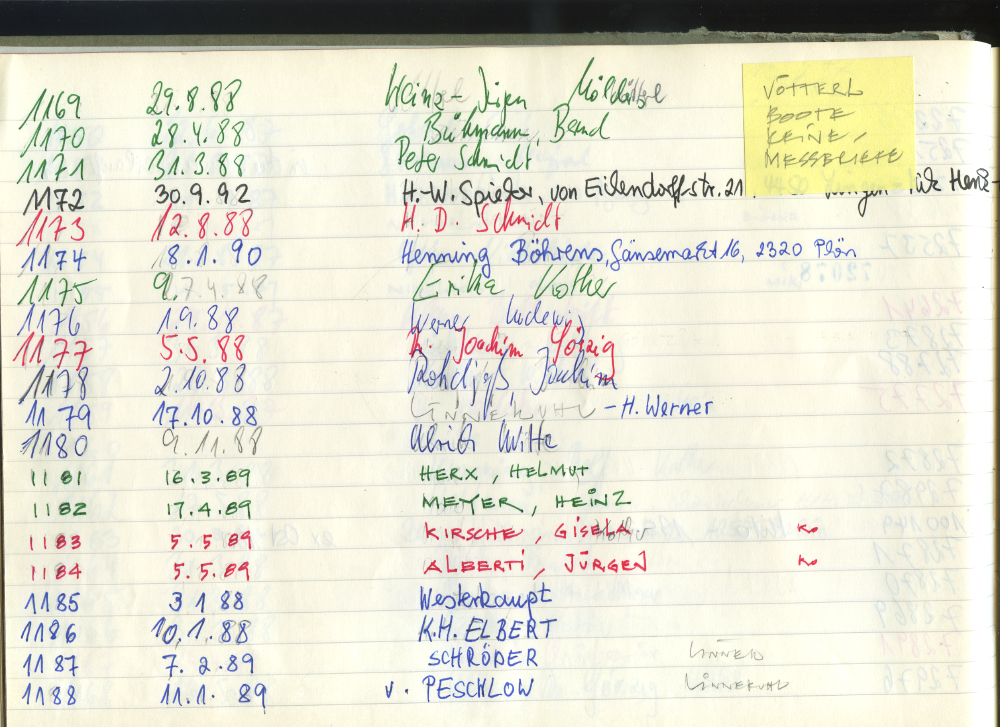 1169 29.8.88 Heinz-Jürgen
1170 28.4.88 Bükmann, Bernd
1171 31.3.88 Peter Schmidt
1172 30.9.92 H.-W. Spieler, von Eilendorffstr. 21
1173 12.8.88 H. D. Schmidt
1174 8.1.90 Henning Böhrens, Gänsemarkt 16, 2320 Plön
1175 9.7.4.88 Erika Kother
1176 1.9.88 Werner Ludewig
1177 5.5.88 Joachim
1178 2.10.88 Joachim
1179 17.10.88 LINNEKUHL - H. Werner
1180 9.11.88 Ulrich Witte
1181 16.3.89 HERX, HELMUT
1182 17.4.89 MEYER, HEINZ
1183 5.5.89 KIRSCHE, GISELA Ko
1184 5.5.89 ALBERTI, JÜRGEN Ko
1185 3 1 88 Westerkaupt
1186 10.1.88 K.H. ELBERT
1187 7.2.89 SCHRÖDER
1188 11.1.89 v. PESCHLOW LINNEKUHL
VÖTTERL
BOOTE
KEINE,
MESSBRIEFE